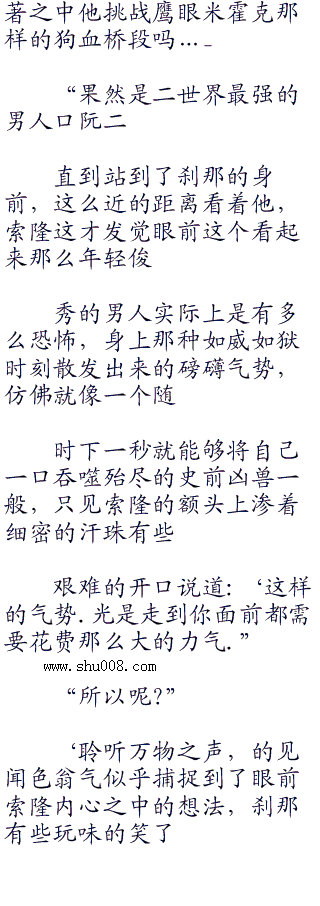 著之中他挑战鹰眼米霍克那
样的狗血桥段吗…_
“果然是二世界最强的
男人口阮二
直到站到了刹那的身
前，这么近的距离看着他，
索隆这才发觉眼前这个看起
来那么年轻俊
秀的男人实际上是有多
么恐怖，身上那种如威如狱
时刻散发出来的磅礴气势，
仿佛就像一个随
时下一秒就能够将自己
一口吞噬殆尽的史前凶兽一
般，只见索隆的额头上渗着
细密的汗珠有些
艰难的开口说道:‘这样
的气势.光是走到你面前都需
要花费那么大的力气.”
www.shu008.com
“所以呢?”
‘聆听万物之声，的见
闻色翁气似乎捕捉到了眼前
索隆内心之中的想法，刹那
有些玩味的笑了